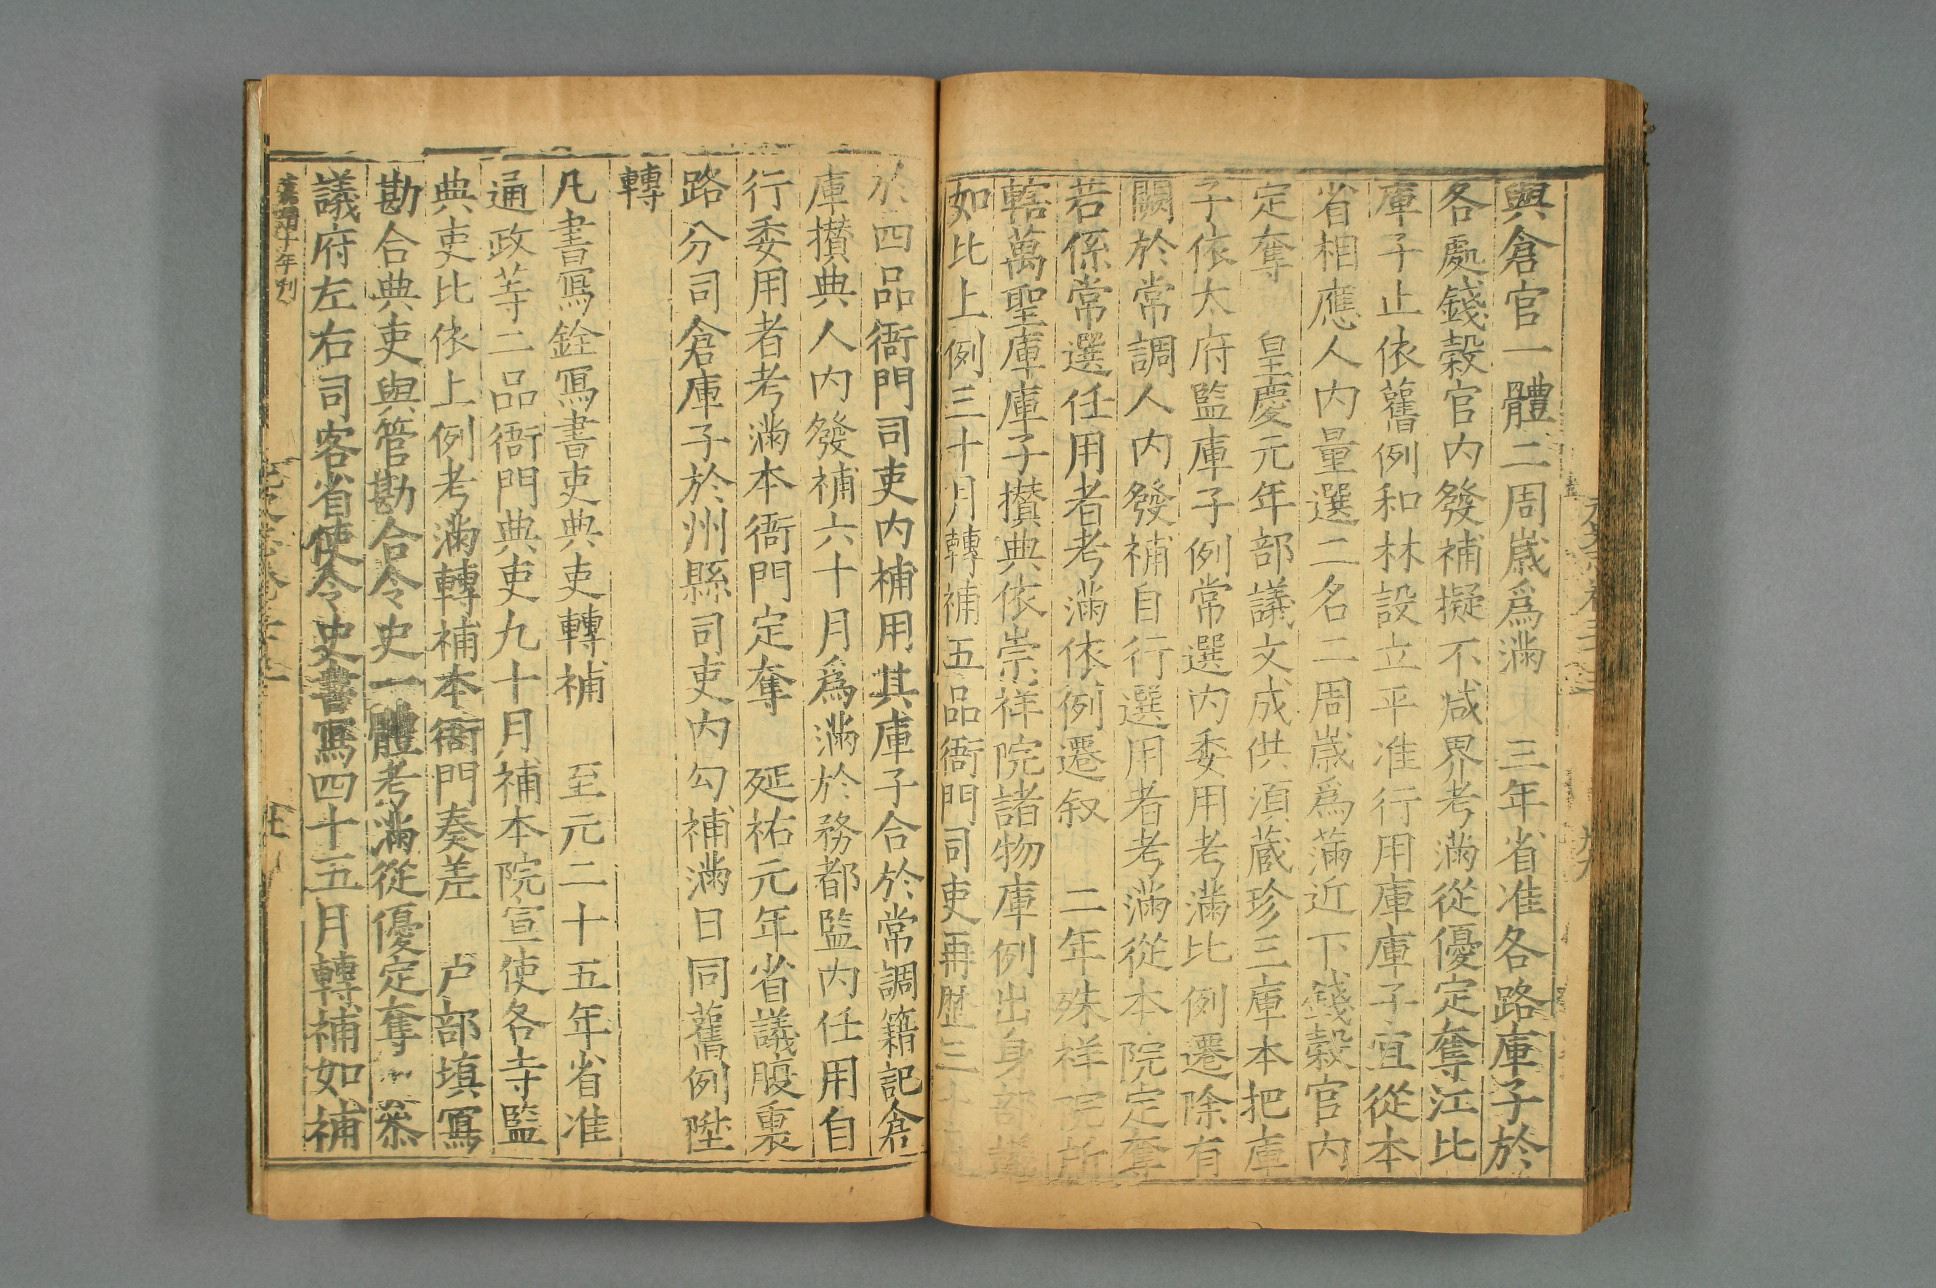 與倉官一體二周歲爲滿 三年省准各路庫子於
各處錢穀官內發補擬不减界考滿從優定奪江北
庫子止依舊例和林設立平准行用庫庫子宜從本
省相應人內量選二名二周歲爲滿近下錢穀官內
定奪 皇慶元年部議文成供須藏珍三庫本把庫
子依太府監庫子例常選內委用考滿比例遷除有
闕於常調人內發補自行選用者考滿從本院定奪
若係常選任用者考滿依例遷叙 二年殊祥院所
轄萬聖庫庫子攢典依崇祥院諸物庫例出身部議
如比上例三十月轉補五品衙門司吏再歷三十
於四品衙門司吏內補用其庫子合於常調籍記倉
庫攢典人內發補六十月爲滿於務都監內任用自
行委用者考滿本衙門定奪 延祐元年省議股裏
路分司倉庫子於州縣司吏內勾補滿日同舊例陞
轉
凡書寫銓寫書吏典吏轉補 至元二十五年省准
通政等二品衙門典吏九十月補本院宣使各寺監
典吏比依上例考滿轉補本衙門奏差 户部填寫
勘合典吏與管勘合令史一體考滿從優定奪 叅
議府左右司客省使令史書寫四十五月轉補如補
年刊